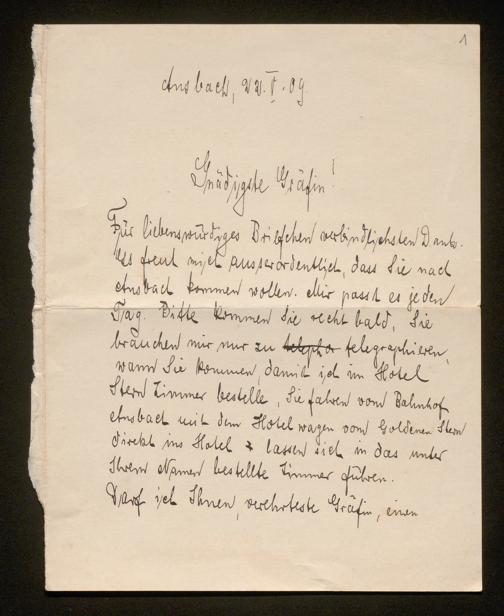 1
Ansbach, 22.V.09.
Gnädigste Gräfin!
Für liebenswürdiges Briefchen verbindlichsten Dank.
Es freut mich ausserordentlich, dass Sie nach
Ansbach kommen wollen. Mir passt es jeden
Tag. Bitte kommen Sie recht bald, Sie
brauchen mir nur zu telepho telegraphieren,
wann Sie kommen, damit ich im Hotel
Stern Zimmer bestelle, Sie fahren vom Bahnhof
Ansbach mit dem Hotelwagen vom Goldenen Stern
direkt ins Hotel & lassen sich in das unter
Ihrem Namen bestellte Zimmer führen.
Darf ich Ihnen, verehrteste Gräfin, einen